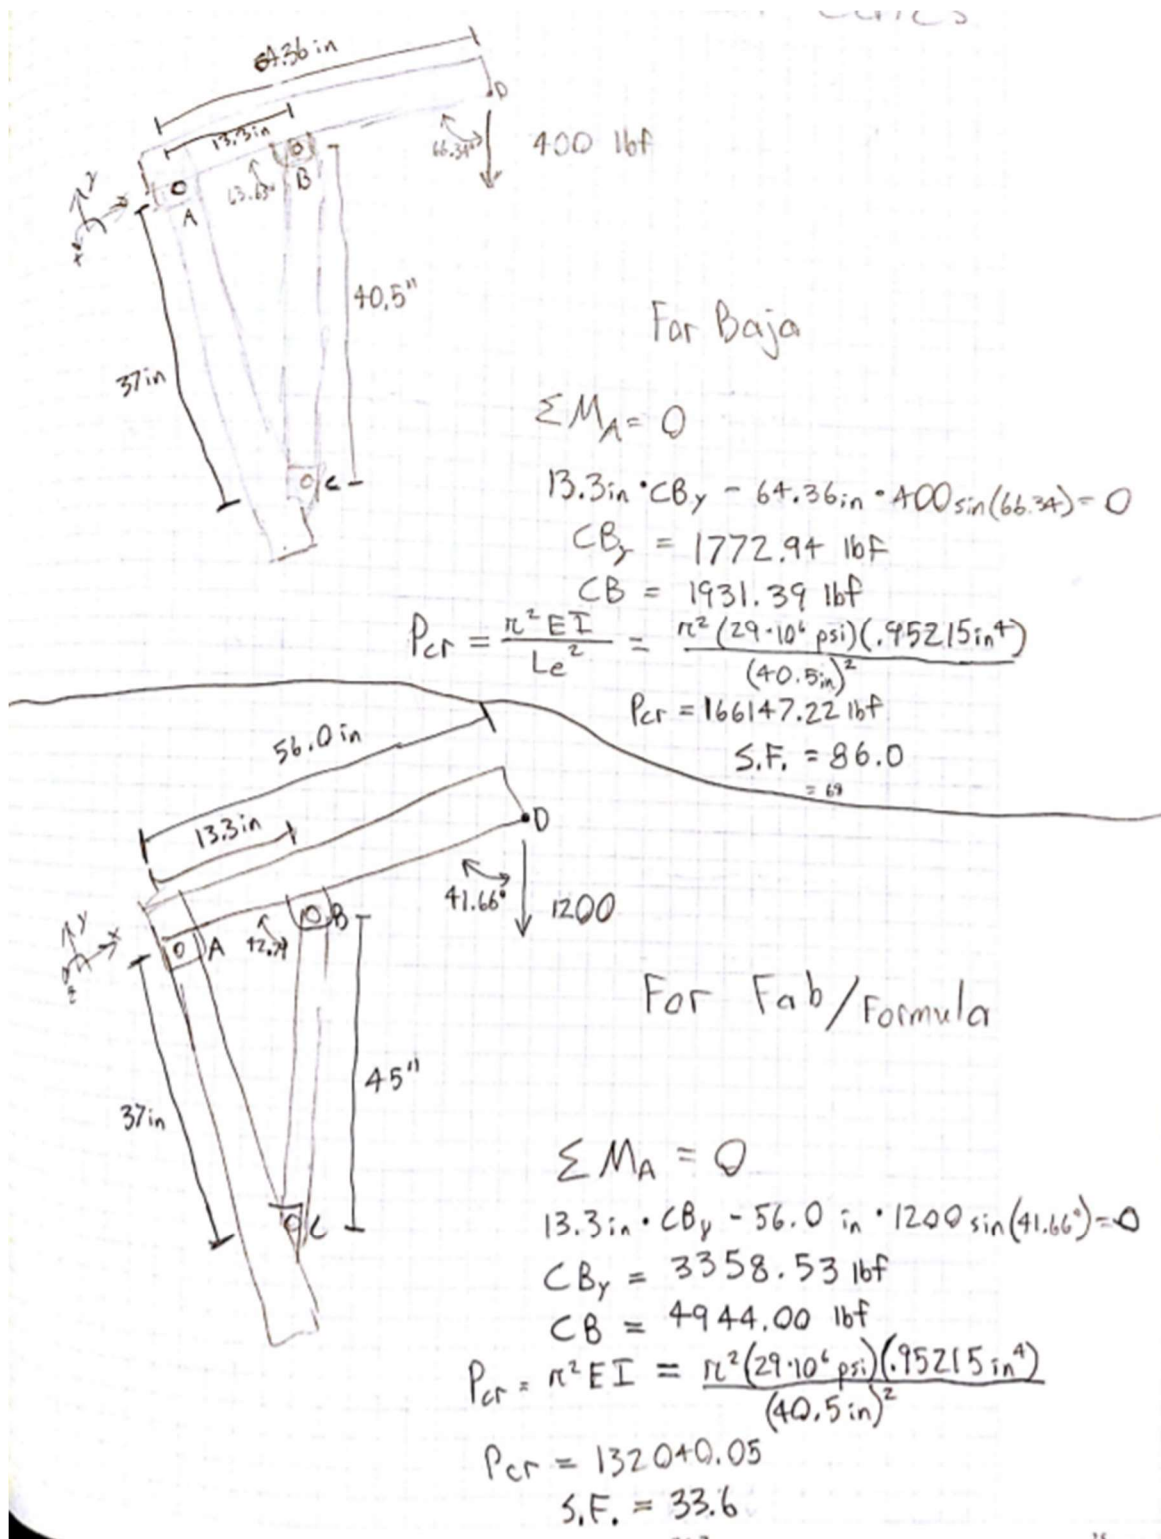 64.36 in
13.3in
D
66.34°
400 lbf
B
63.63°
y
A
40.5"
For Baja
37in
ΣM_A = 0
C
13.3in · CBy - 64.36in · 400 sin(66.34) = 0
CBy = 1772.94 lbf
CB = 1931.39 lbf
Pcr = π²EI / Le² = π²(29·10⁶ psi)(.95215in⁴) / (40.5in)²
Pcr = 166147.22 lbf
S.F. = 86.0
56.0 in
13.3in
D
41.66°
1200
B
y
x
A
z
For Fab/Formula
45"
37in
ΣM_A = 0
C
13.3in · CBy - 56.0 in · 1200 sin(41.66°) = 0
CBy = 3358.53 lbf
CB = 4944.00 lbf
Pcr = π²EI = π²(29·10⁶ psi)(.95215in⁴) / (40.5in)²
Pcr = 132040.05
S.F. = 33.6